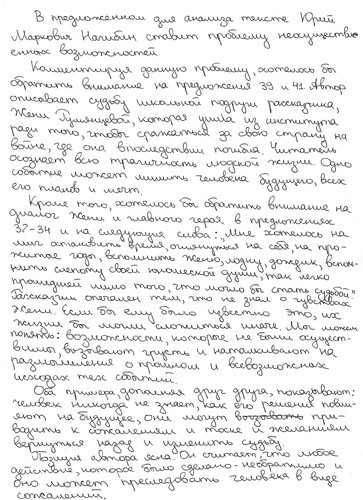 В предложенном для анализа тексте Юрий
Маркович Нагибин ставит проблему неосуществл-
енных возможностей
Комментируя данную проблему, хотелось бы
обратить внимание на предложения 39 и 41. Автор
описывает судьбу школьной подруги рассказчика,
Жени Румянцевой, которая ушла из института
ради того, чтобы сражаться за свою страну на
войне, где она впоследствии погибла. Читатель
осознает всю трагичность людской жизни. Одно
событие может лишить человека будущего, всех
его планов и мечт.
Кроме того, хотелось бы обратить внимание на
диалог Жени и главного героя в предложениях
32-34 и на следующие слова: „Мне хотелось на
миг остановить время, оглянуться на себя, на про-
житые годы, вспомнить Женю, лодку, дождик, вспом-
нить слепоту своей юношеской души, так легко
прошедшей мимо того, что могло бы стать судьбой."
Рассказчик опечален тем, что не знал о чувствах
Жени. Если бы ему было известно это, их
жизни бы могли сложиться иначе. Мы можем
понять: возможности, которые не были осущест-
влены, вызывают грусть и наталкивают на
размышления о прошлом и всевозможных
исходах тех событий.
Оба примера, дополняя друг друга, показывают:
человек никогда не знает, как его решения повли-
яют на будущее, они могут при-
водить к сожалениям и тоске и желанием
вернуться назад и изменить судьбу.
Позиция автора ясна. Он считает, что любое
действие, которое было сделано-необратимо и
оно может преследовать человека в виде
сожалений.